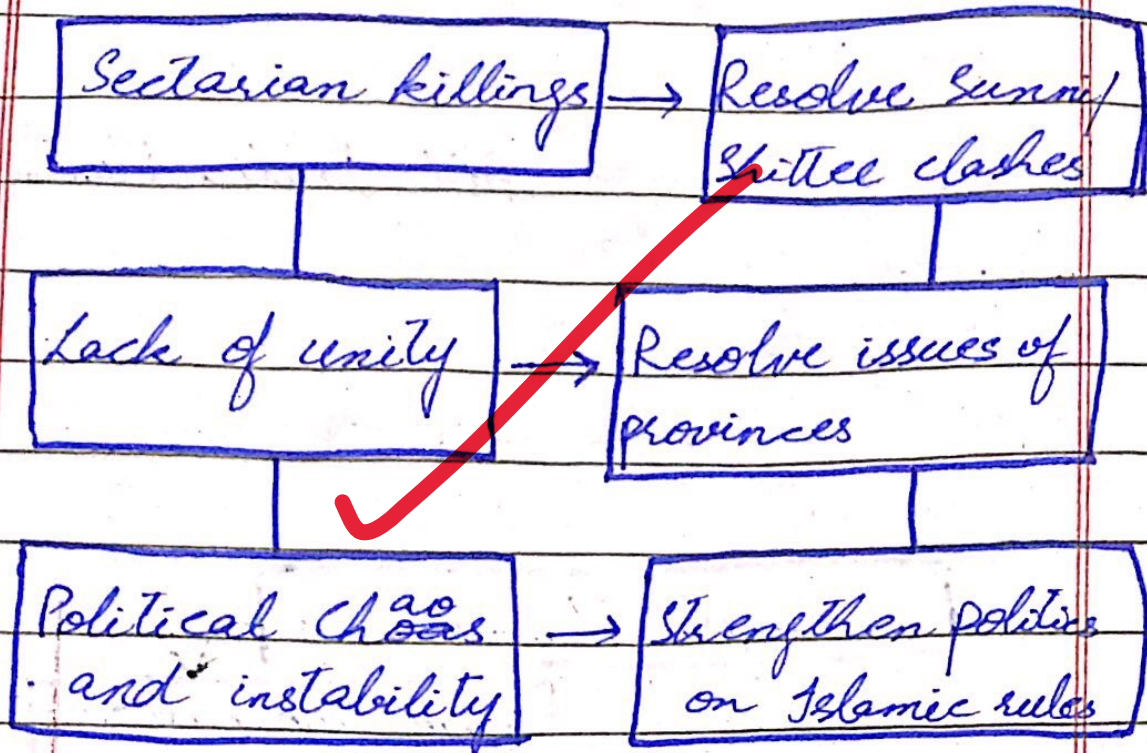 Sectarian killings → Resolve Sunni/
Shittee clashes
Lack of unity → Resolve issues of
provinces
Political chaos → Strengthen politics
and instability on Islamic rules